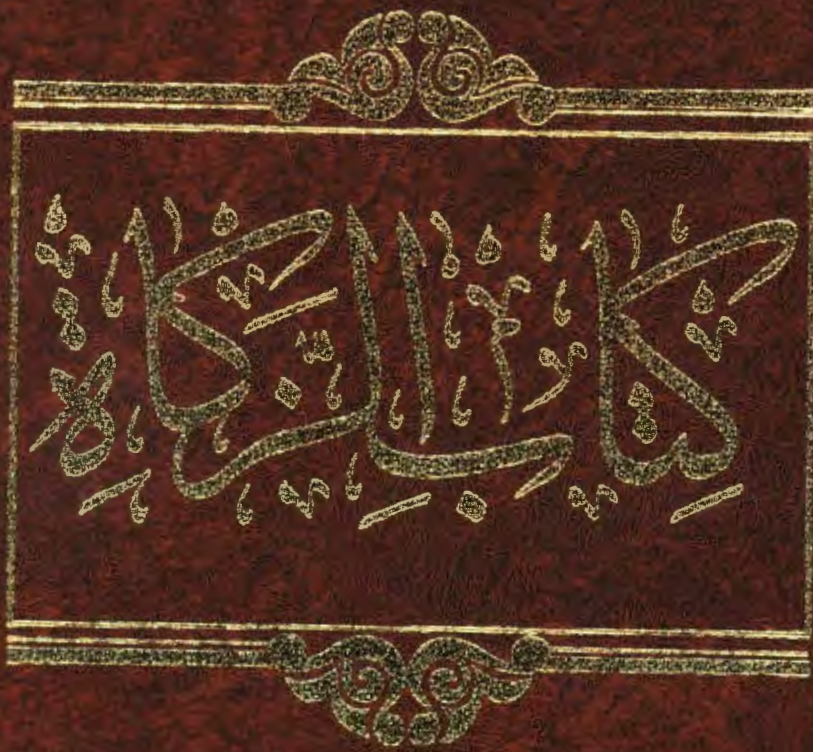 كِتَابِ الزَّكَاةِ